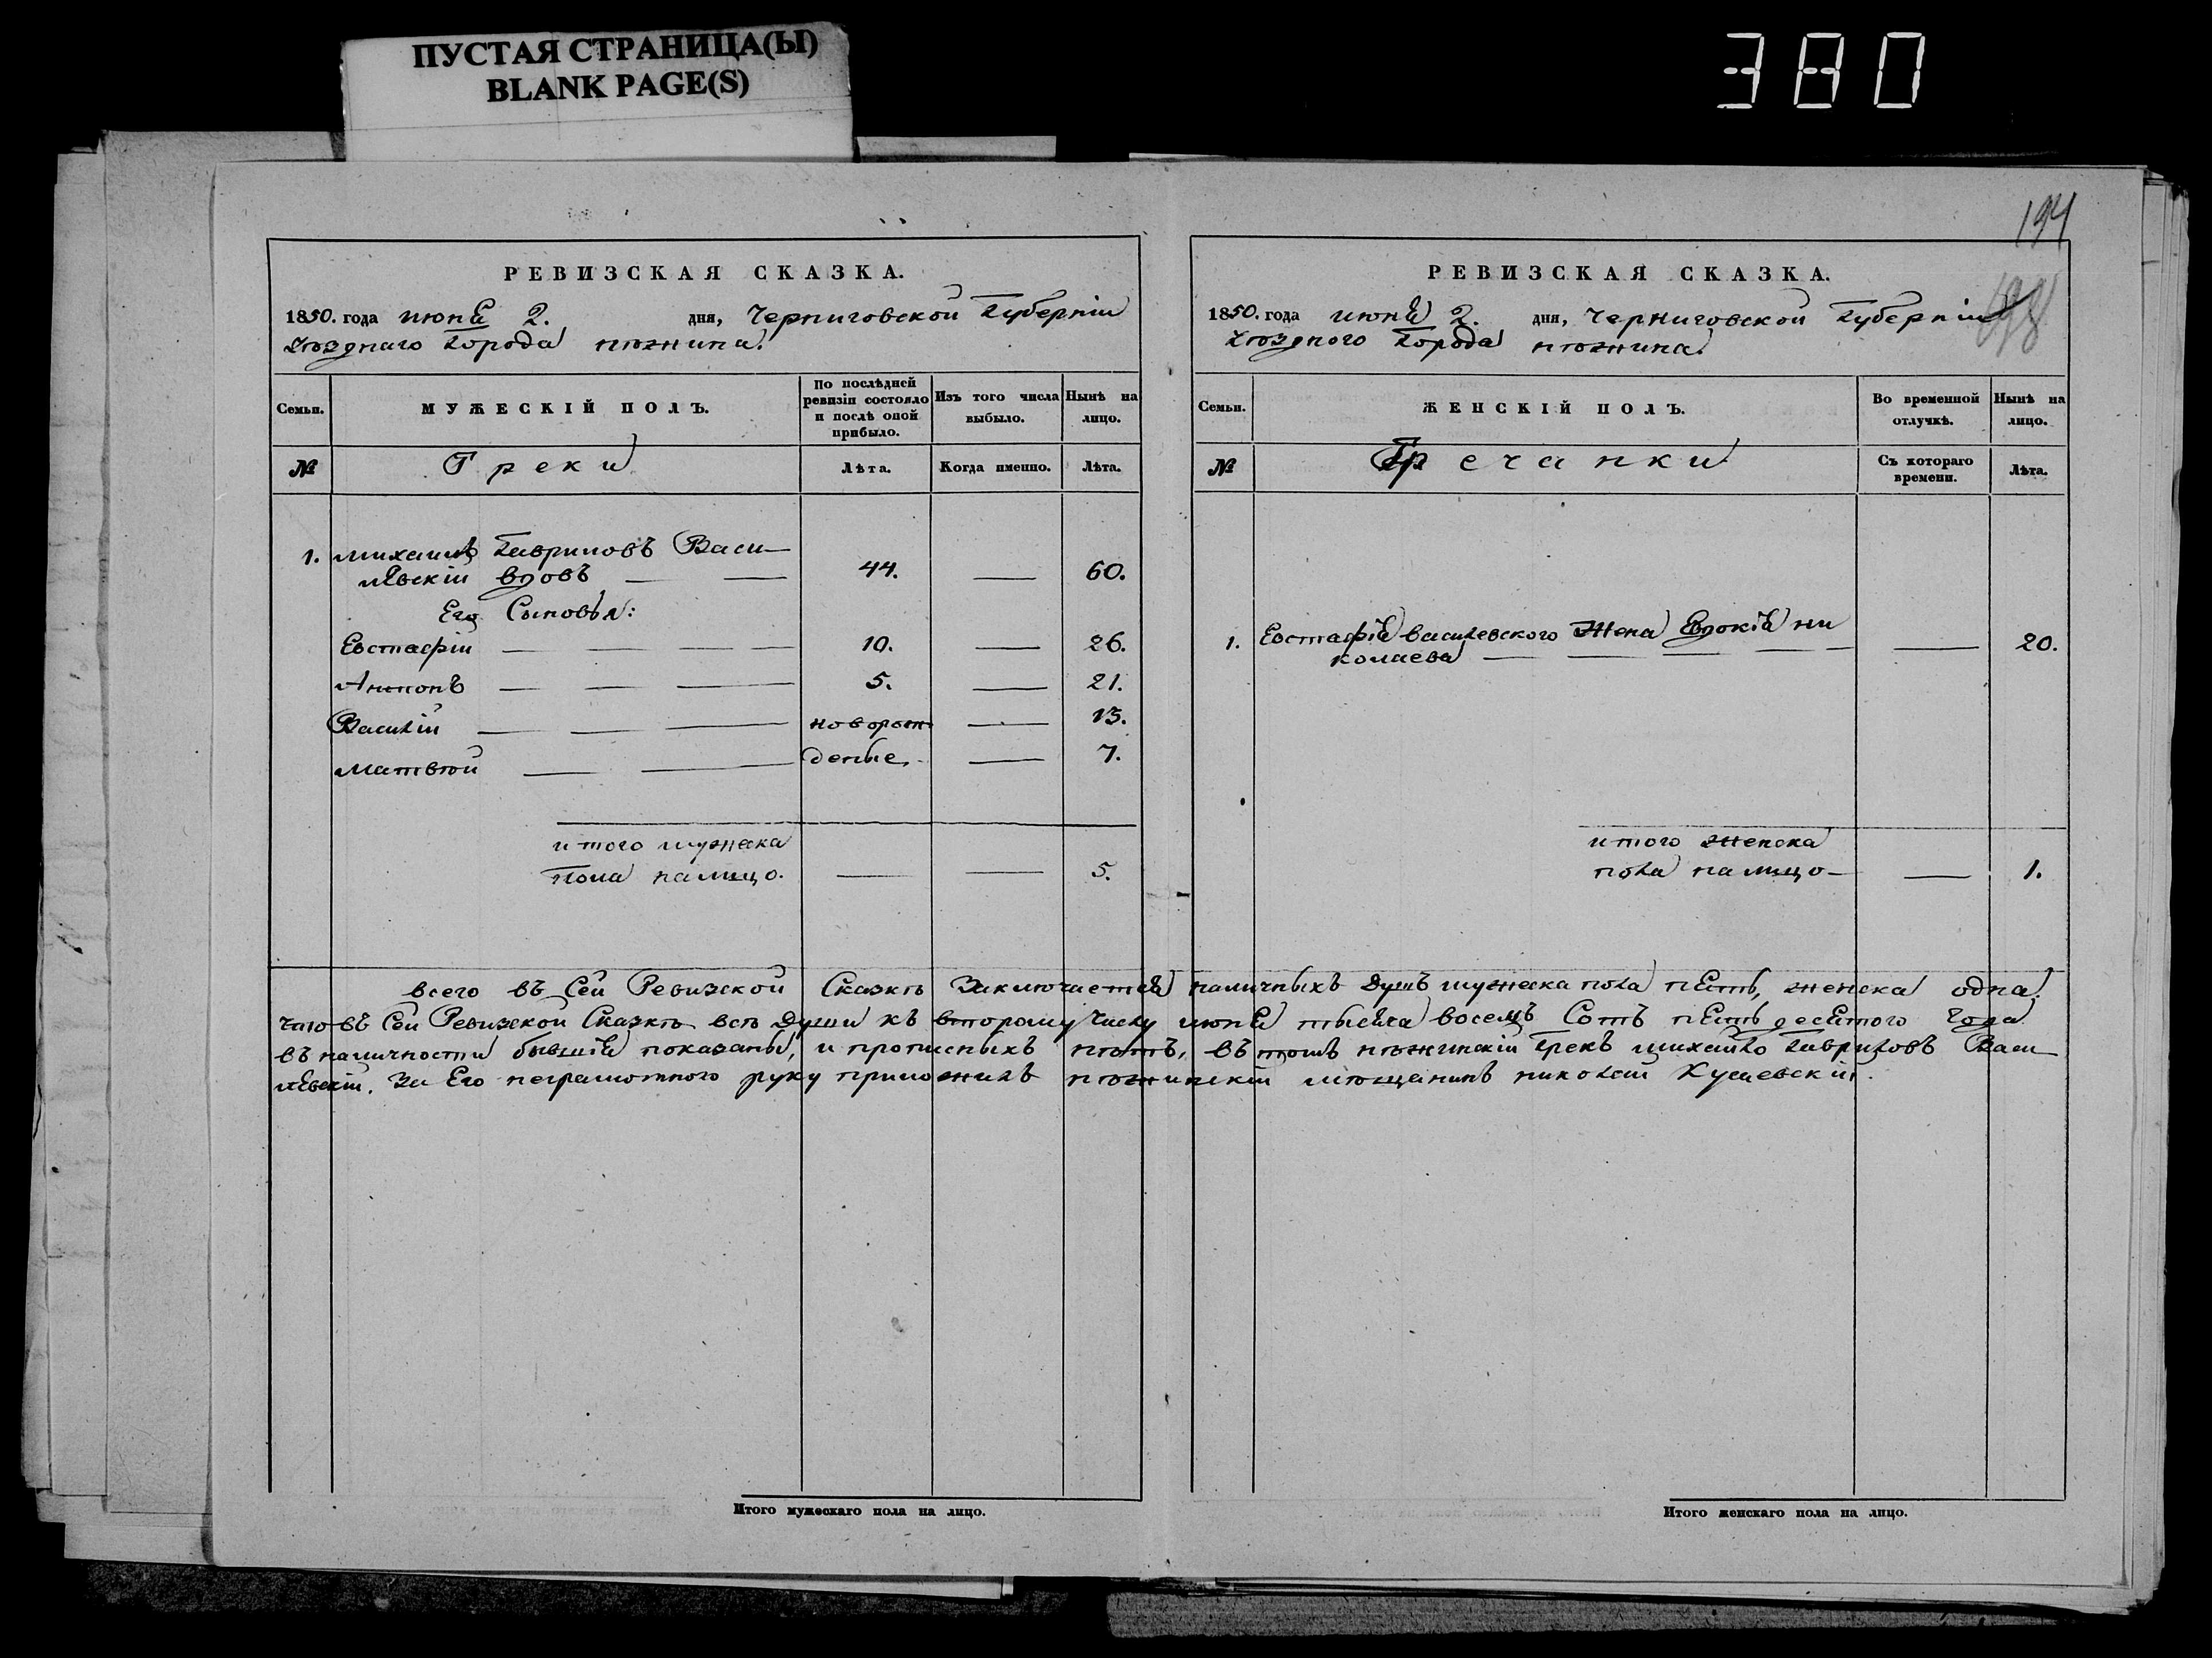 ПУСТАЯ СТРАНИЦА(Ы)
BLANK PAGE(S)
380
194
РЕВИЗСКАЯ СКАЗКА.
1850. года июня 2. дня, Черниговской Губерніи
Уѣзднаго Города Нѣжина.
Семьи.
МУЖЕСКІЙ ПОЛЪ.
По послѣдней ревизіи состояло и послѣ оной прибыло.
Изъ того числа выбыло.
Нынѣ на лицо.
№
Греки
Лѣта.
Когда именно.
Лѣта.
1. Михаилъ Гавриловъ Васи-
левскій вдовъ — — 44. — 60.
Его Сыновья:
Евстафій — — — — 10. — 26.
Антонъ — — — 5. — 21.
Василій — — — новорож — 13.
Матвѣй — — деные, — 7.
итого мужеска
пола налицо. — — 5.
РЕВИЗСКАЯ СКАЗКА.
1850. года июня 2. дня, Черниговской Губерніи
Уѣздного Города Нѣжина.
Семьи.
ЖЕНСКІЙ ПОЛЪ.
Во временной отлучкѣ.
Нынѣ на лицо.
№
Гречанки
Съ котораго времени.
Лѣта.
1. Евстафія василевского Жена Евдокія ни
колаева — — — — — — 20.
итого женска
пола налицо — — 1.
всего въ Сей Ревизской Сказкѣ Заключается наличныхъ душъ мужеска пола пять, женска одна.
что въ Сей Ревизской Сказкѣ всѣ Души къ второму числу июня тысяча восемъ Сотъ пять десятого Года
въ наличности бывшія показаны, и прописныхъ нѣтъ, въ томъ нѣжинскій Грекъ михайло Гавриловъ Васи
левскій. За Его неграмотного руку приложилъ нѣжинскій мѣщанинъ николай
Итого мужескаго пола на лицо.
Итого женскаго пола на лицо.